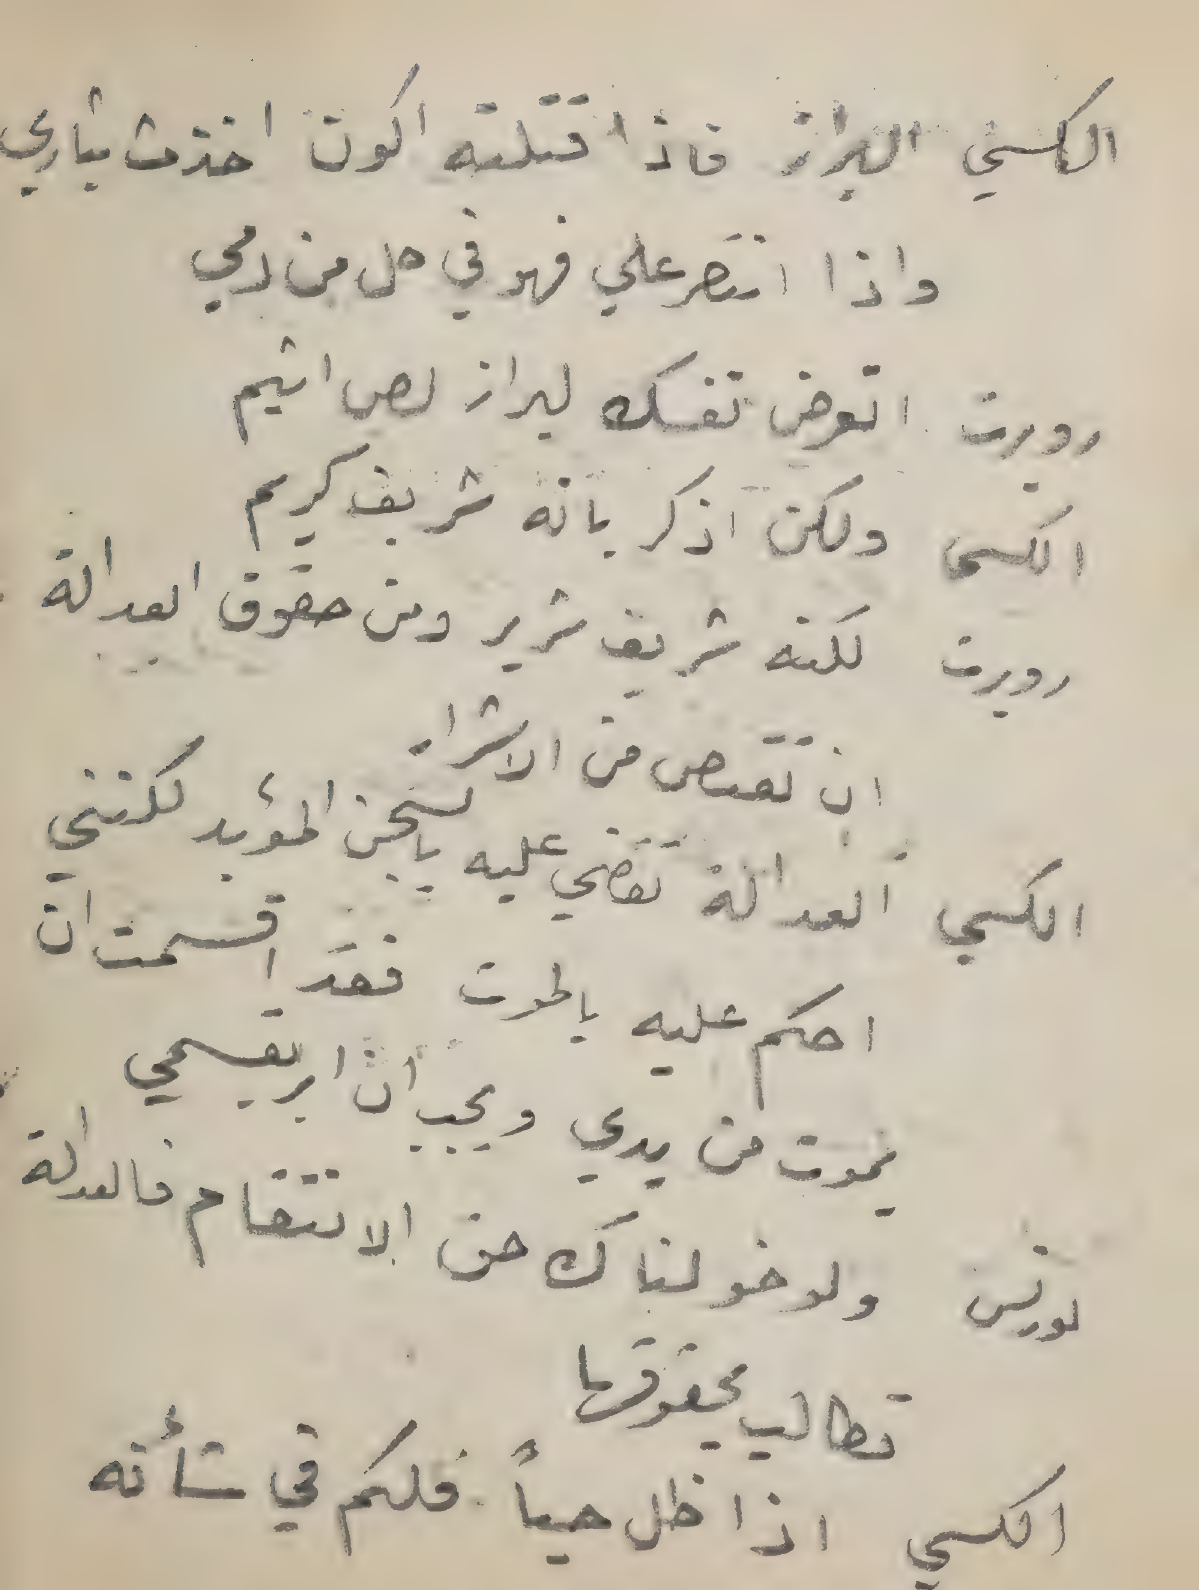 الكسي البراز فاذا قتلته اكون اخذت بثاري
واذا انتصر علي فهو في حل من دمي
روبرت اتعرض نفسك لبراز لص اثيم
الكسي ولكن اذكر بانه شريف كريم
روبرت لكنه شريف شرير ومن حقوق العدالة
ان تقتص من الاشرار
الكسي العدالة تقضي عليه بالسجن المؤبد لكنني
احكم عليه بالموت فقد اقسمت ان
يموت من يدي ويجب ان ابر بقسمي
لورنس ولو خولناك حق الانتقام فالعدالة
تطالب بحقوقها
الكسي اذا ظل حياً فلكم في شأنه